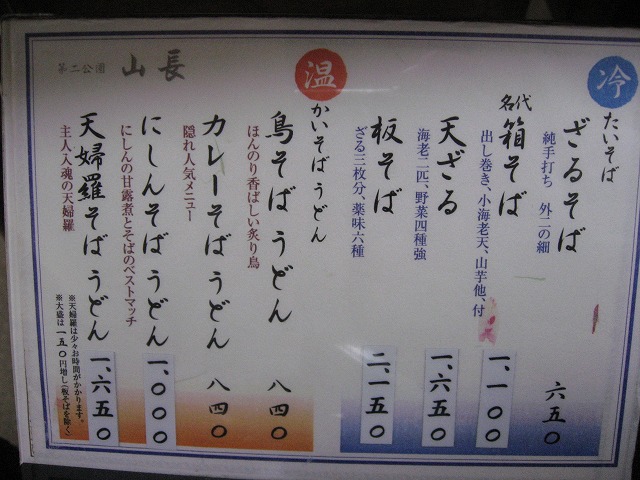 冷
たいそば
ざるそば
純手打ち 外二の細
六五〇
名代
箱そば
出し巻き、小海老天、山芋他、付
一、一〇〇
天ざる
海老二匹、野菜四種強
一、六五〇
板そば
ざる三枚分 薬味六種
二、一五〇
温
かいそば うどん
鳥そば うどん
ほんのり香ばしい炙り鳥
八四〇
カレーそば うどん
隠れ人気メニュー
八四〇
にしんそば うどん
にしんの甘露煮とそばのベストマッチ
一、〇〇〇
天婦羅そば うどん
主人入魂の天婦羅
一、六五〇
※天婦羅は少々お時間がかかります。
※大盛は一五〇円増し(板そばを除く)
第二公園 山長